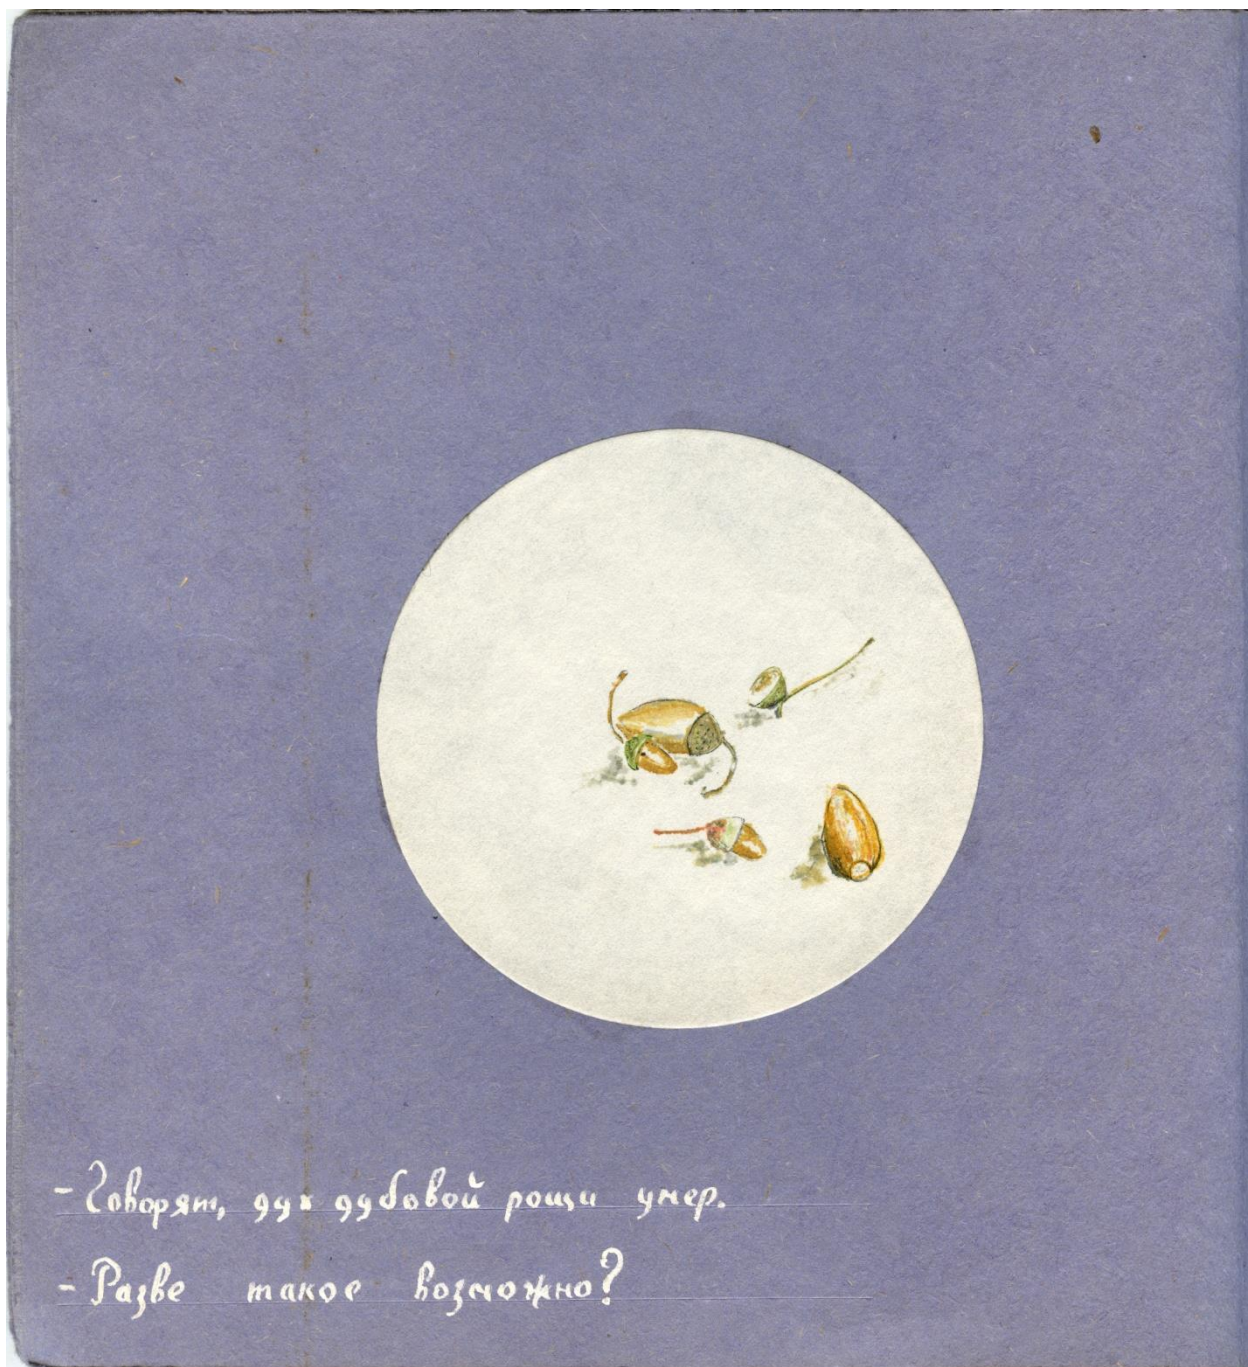 - Говорят, дух дубовой рощи умер.
- Разве такое возможно?